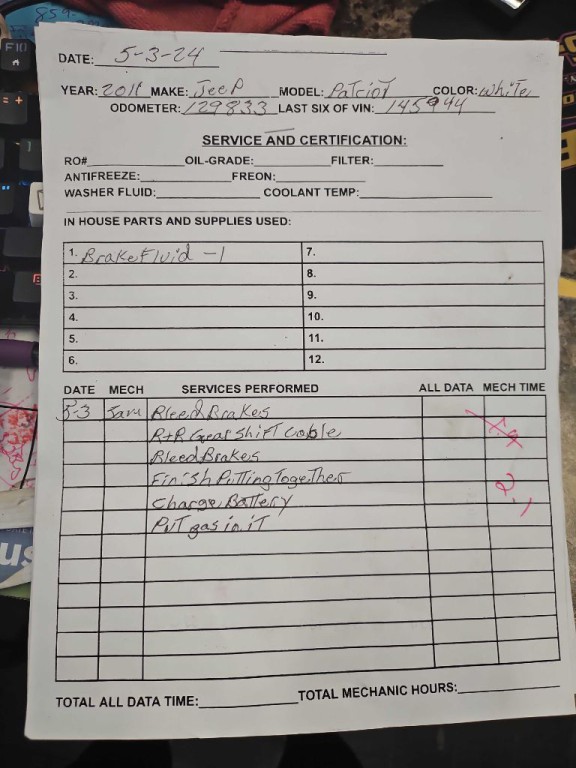 859-
F10
DATE: 5-3-24
YEAR: 2011 MAKE: Jeep MODEL: Patriot COLOR: White
ODOMETER: 129833 LAST SIX OF VIN: 145944
SERVICE AND CERTIFICATION:
RO# OIL-GRADE: FILTER:
ANTIFREEZE: FREON:
WASHER FLUID: COOLANT TEMP:
IN HOUSE PARTS AND SUPPLIES USED:
1. Brake Fluid -1 7.
2. 8.
3. 9.
4. 10.
5. 11.
6. 12.
DATE MECH SERVICES PERFORMED ALL DATA MECH TIME
5-3 Bleed Brakes
R+R Gear Shift Cable
Bleed Brakes
Finish Putting Together
Charge Battery 2.1
Put gas in iT
TOTAL ALL DATA TIME: TOTAL MECHANIC HOURS: